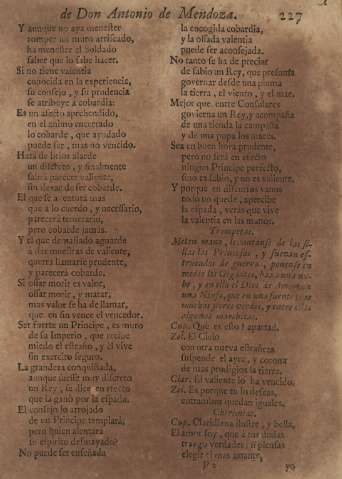 de Don Antonio de Mendoza. 227
Y aunque no aya menester
romper un muro artificado,
ha menester el Soldado
saber que lo sabe hacer.
Si no tiene valentia
conocida en experiencia,
su consejo, y su prudencia
se atribuye à cobardia:
Es un afecto aprehendido,
en el animo encerrado
lo cobarde, que ayudado
puede ser, mas no vencido.
Hará de leios alarde
un discreto, y finalmente
sabrá parecer valiente,
sin dexar de ser cobarde.
El que se aventura mas
que à lo cuerdo, y necessario,
parecerá temerario,
pero cobarde jamàs.
Y el que demasiado aguarda
à dár muestras de valiente,
querrá llamarse prudente,
y parecerá cobarde.
Si ossar morir es valor,
ossar morir, y matar,
mas valor se ha de llamar,
que en sin vence el vencedor.
Ser fuerte un Principe, es muro
de su Imperio, que recibe
miedo el estraño, y èl vive
sin exercito seguro.
La grandeza conquistada,
aunque fuesse muy discreto
un Rey, se dice en efecto
que la ganò por la espada.
El consejo lo arrojado
de un Principe templará;
pero quien alentará
su espiritu desmayado?
No puede ser enseñada
la encogida cobardia,
y la ossada valentia
puede ser aconsejada.
No tanto se ha de preciar
de sabio un Rey, que presuma
governar desde una pluma
la tierra, el viento, y el mar.
Mejor que entre Consulares
govierna un Rey, y acompaña
de una tienda la campaña
y de una popa los mares.
Sea en buen hora prudente,
pero no será en efecto
ningun Principe perfecto,
sino es sabio, y no es valiente.
Y porque en discursos vanos
todo no quede, apercibe
la espada, veràs que vive
la valentia en las manos.
Trompetas.
Meten mano, levantanse de las sillas
las Princesas, y suenan
de guerra, ponense en
medio los Gigantes,
y en ella el Dios de Amor, con
una Ninfa, que en una fuente
muchas flores
algunos
Cup. Què es esto? apartad.
Zel. El Cielo
con otra nueva estrañeza
suspende el ayre, y corona
de mas prodigios la tierra.
Clar. El valiente lo ha vencido.
Zel. Es porque en lo deseas,
entrambos quedan iguales.
Chirimias.
Cup. Claridiana ilustre, y bella,
El amor soy, que à tus dudas
traygo verdades: si piensas
elegir el mas amante,
P 2 yo